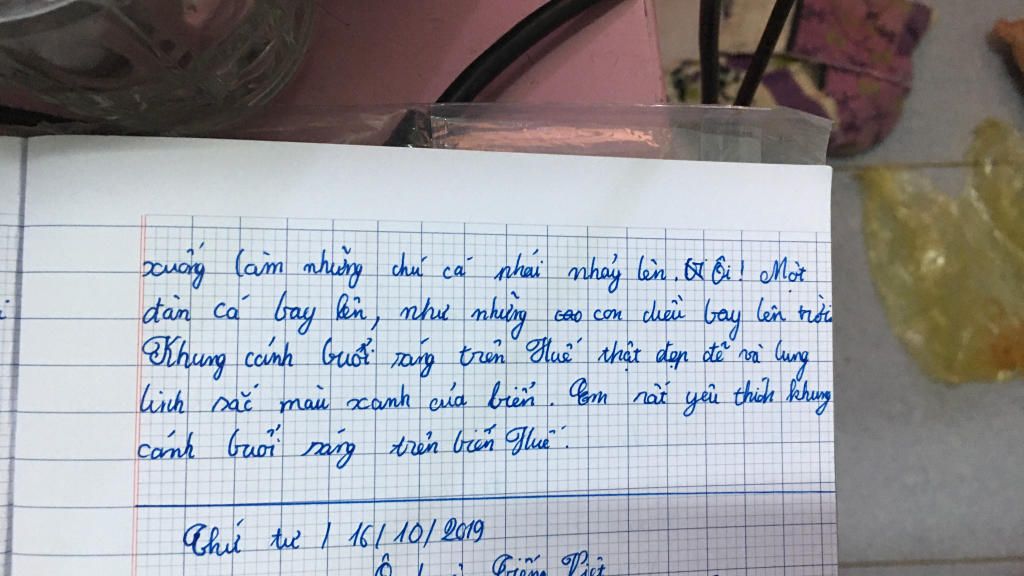 xuống làm những chú cá nhái nhảy lên. Ôi! Một
đàn cá bay lên, như những con diều bay lên trời
Khung cảnh buổi sáng trên Huế thật đẹp đẽ và lung
linh sắc màu xanh của biển. Em rất yêu thích khung
cảnh buổi sáng trên biển Huế.
Thứ tư / 16/10/2019
Tiếng Việt